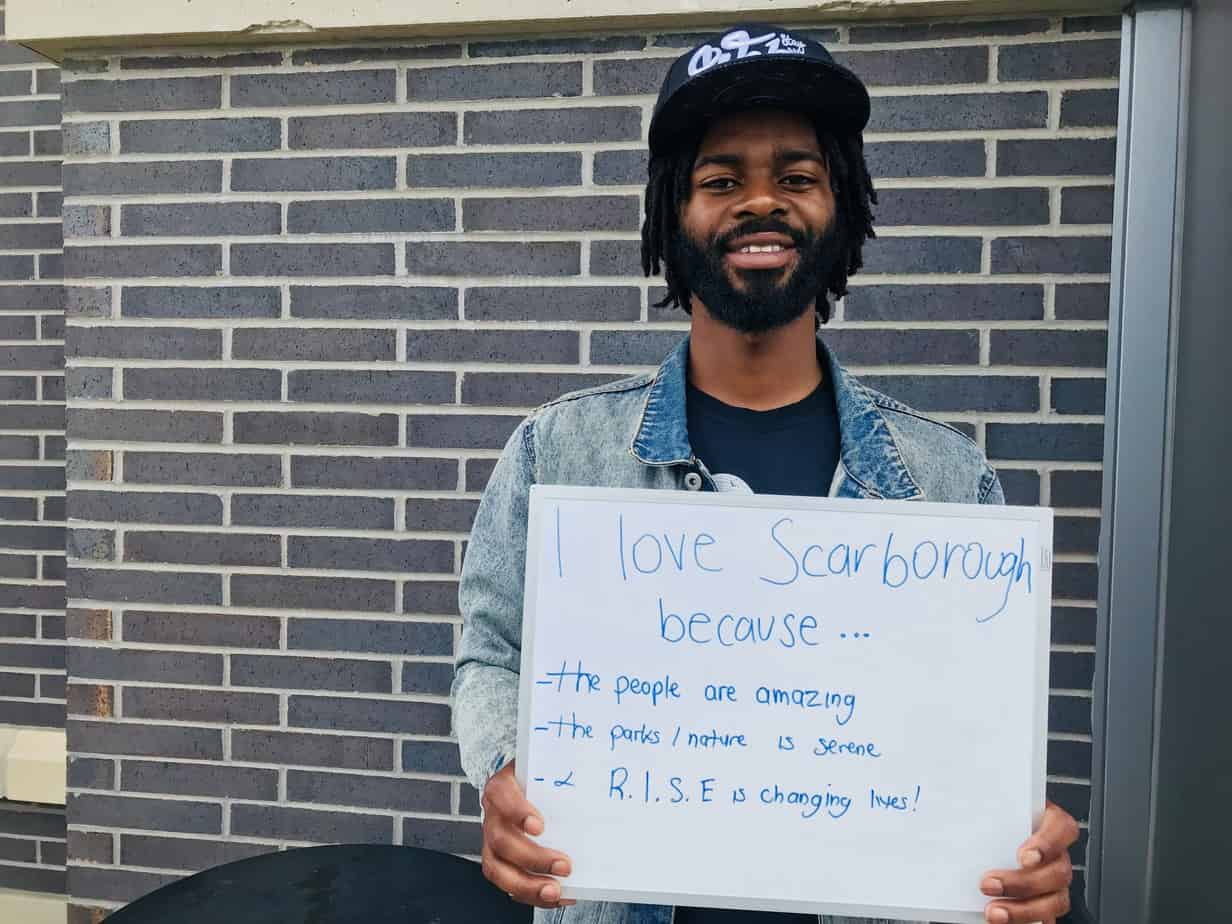 I love Scarborough
because...
-the people are amazing
-the parks/nature is serene
-& R.I.S.E is changing lives!